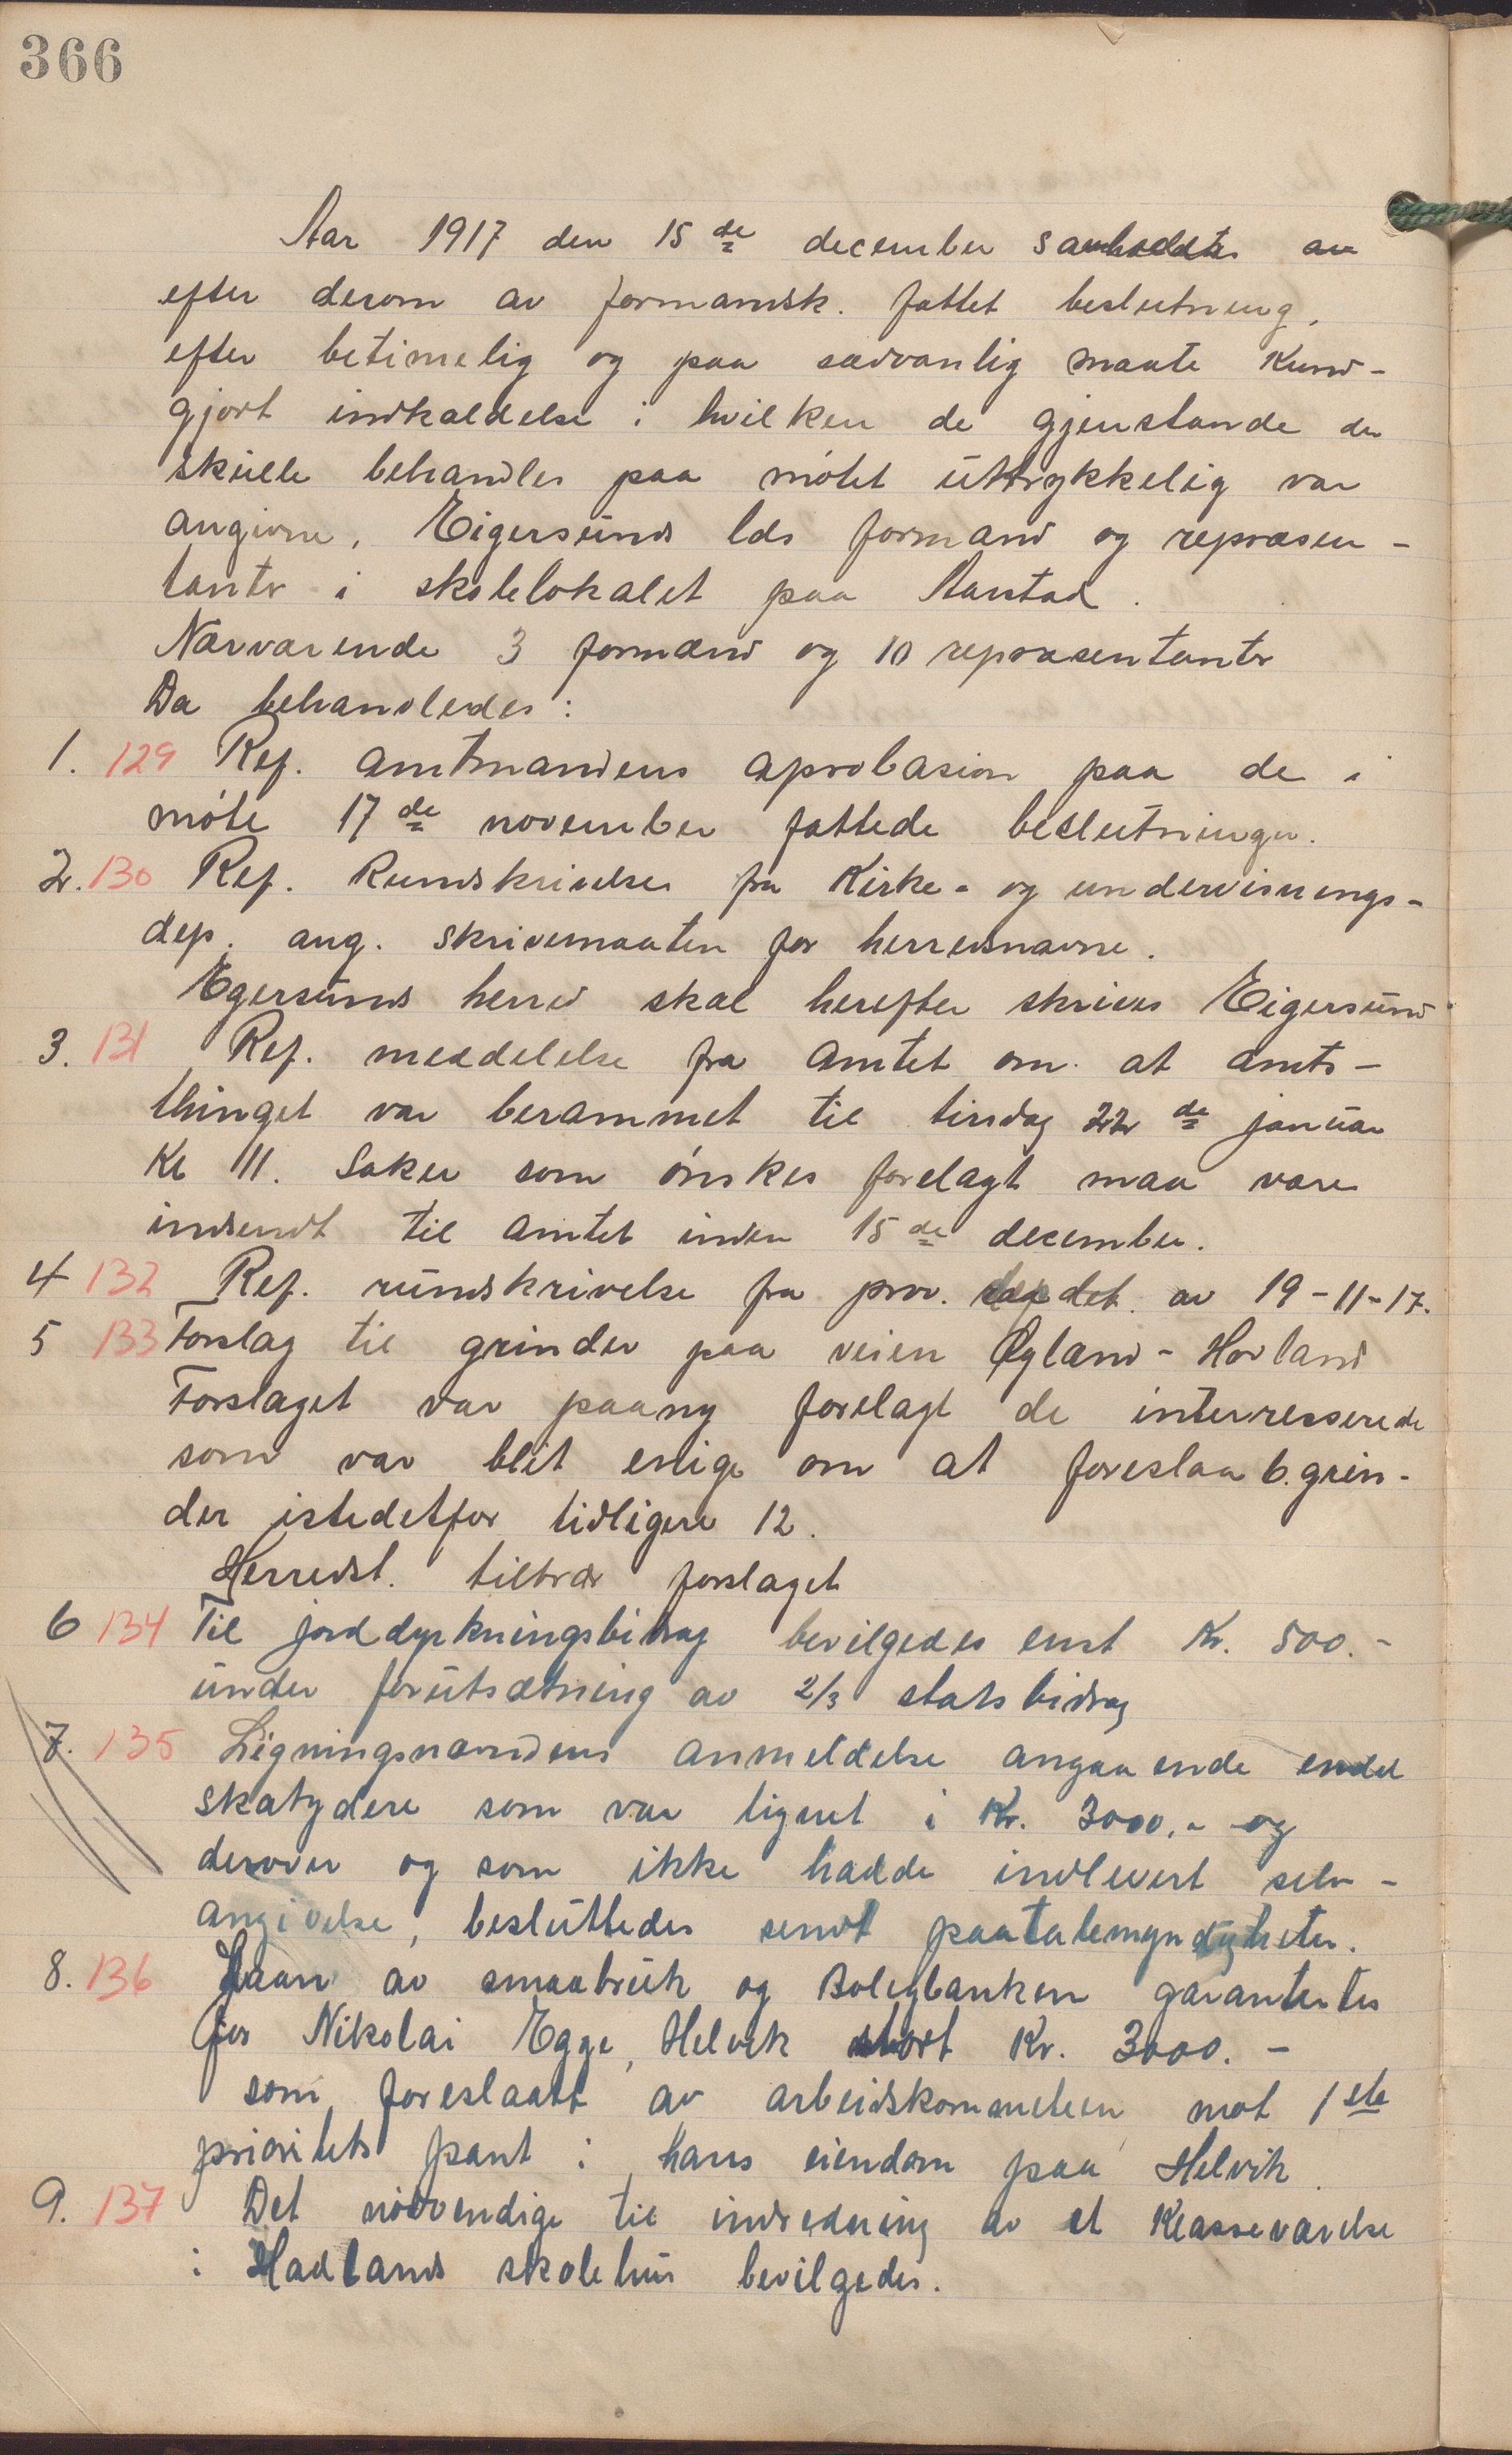 366
Aar 1917 den 15de december samholdtes av
efter derom av formandsk. fattet beslutning,
efter betimelig og paa sædvanlig maate kund-
gjort indkaldelse i hvilken de gjenstande der
skulle behandles paa møtet uttrykkelig var
angivne, Eigersunds lds formænd og repræsen-
tanter i skolelokalet paa Aarstad.
Nærværende 3 formænd og 10 repræsentanter
Da behandledes:
1. 129 Ref. amtmandens aprobasion paa de i
møte 17de november fattede beslutninger.
2. 130 Ref. Rundskrivelse fra Kirke- og undervisnings-
dep. ang. skrivemaaten for herredsnavne.
Egersunds herred skal herefter skrives Eigersund
3. 131 Ref. meddelelse fra amtet om at amts-
thinget var berammet til tirsdag 22de januar
Kl 11. Saker som ønskes forelagt maa være
indsendt til amtet inden 15de december.
4 132 Ref. rundskrivelse fra prov. dep det. av 19-11-17.
5 133 Forslag til grinder paa veien Øgland - Hovland
Forslaget var paany forelagt de interresserede
som var blit enige om at foreslaa 6. grin-
der istedetfor tidligere 12.
Herredst. tiltrær forslaget
6 134 Til jorddyrkningsbidrag bevilgedes emt Kr. 500.-
under forutsætning av 2/3 statsbidrag
7. 135 Ligningsnævndens anmeldelse angaaende endel
skatydere som var lignet i Kr. 3000.- og
derover og som ikke hadde indlevert selv-
angivelse, besluttedes sendt paatalemyndigheten.
8. 136 Laan av smaabruk og Boligbanken garantertes
for Nikolai Egge, Helvik stort Kr. 3000.-
som foreslaatt av arbeidskommiteen mot 1ste
prioritets pant i hans eiendom paa Helvik.
9. 137 Det nødvendige til indredning av et klasseværelse
i Hadlands skolehus bevilgedes.